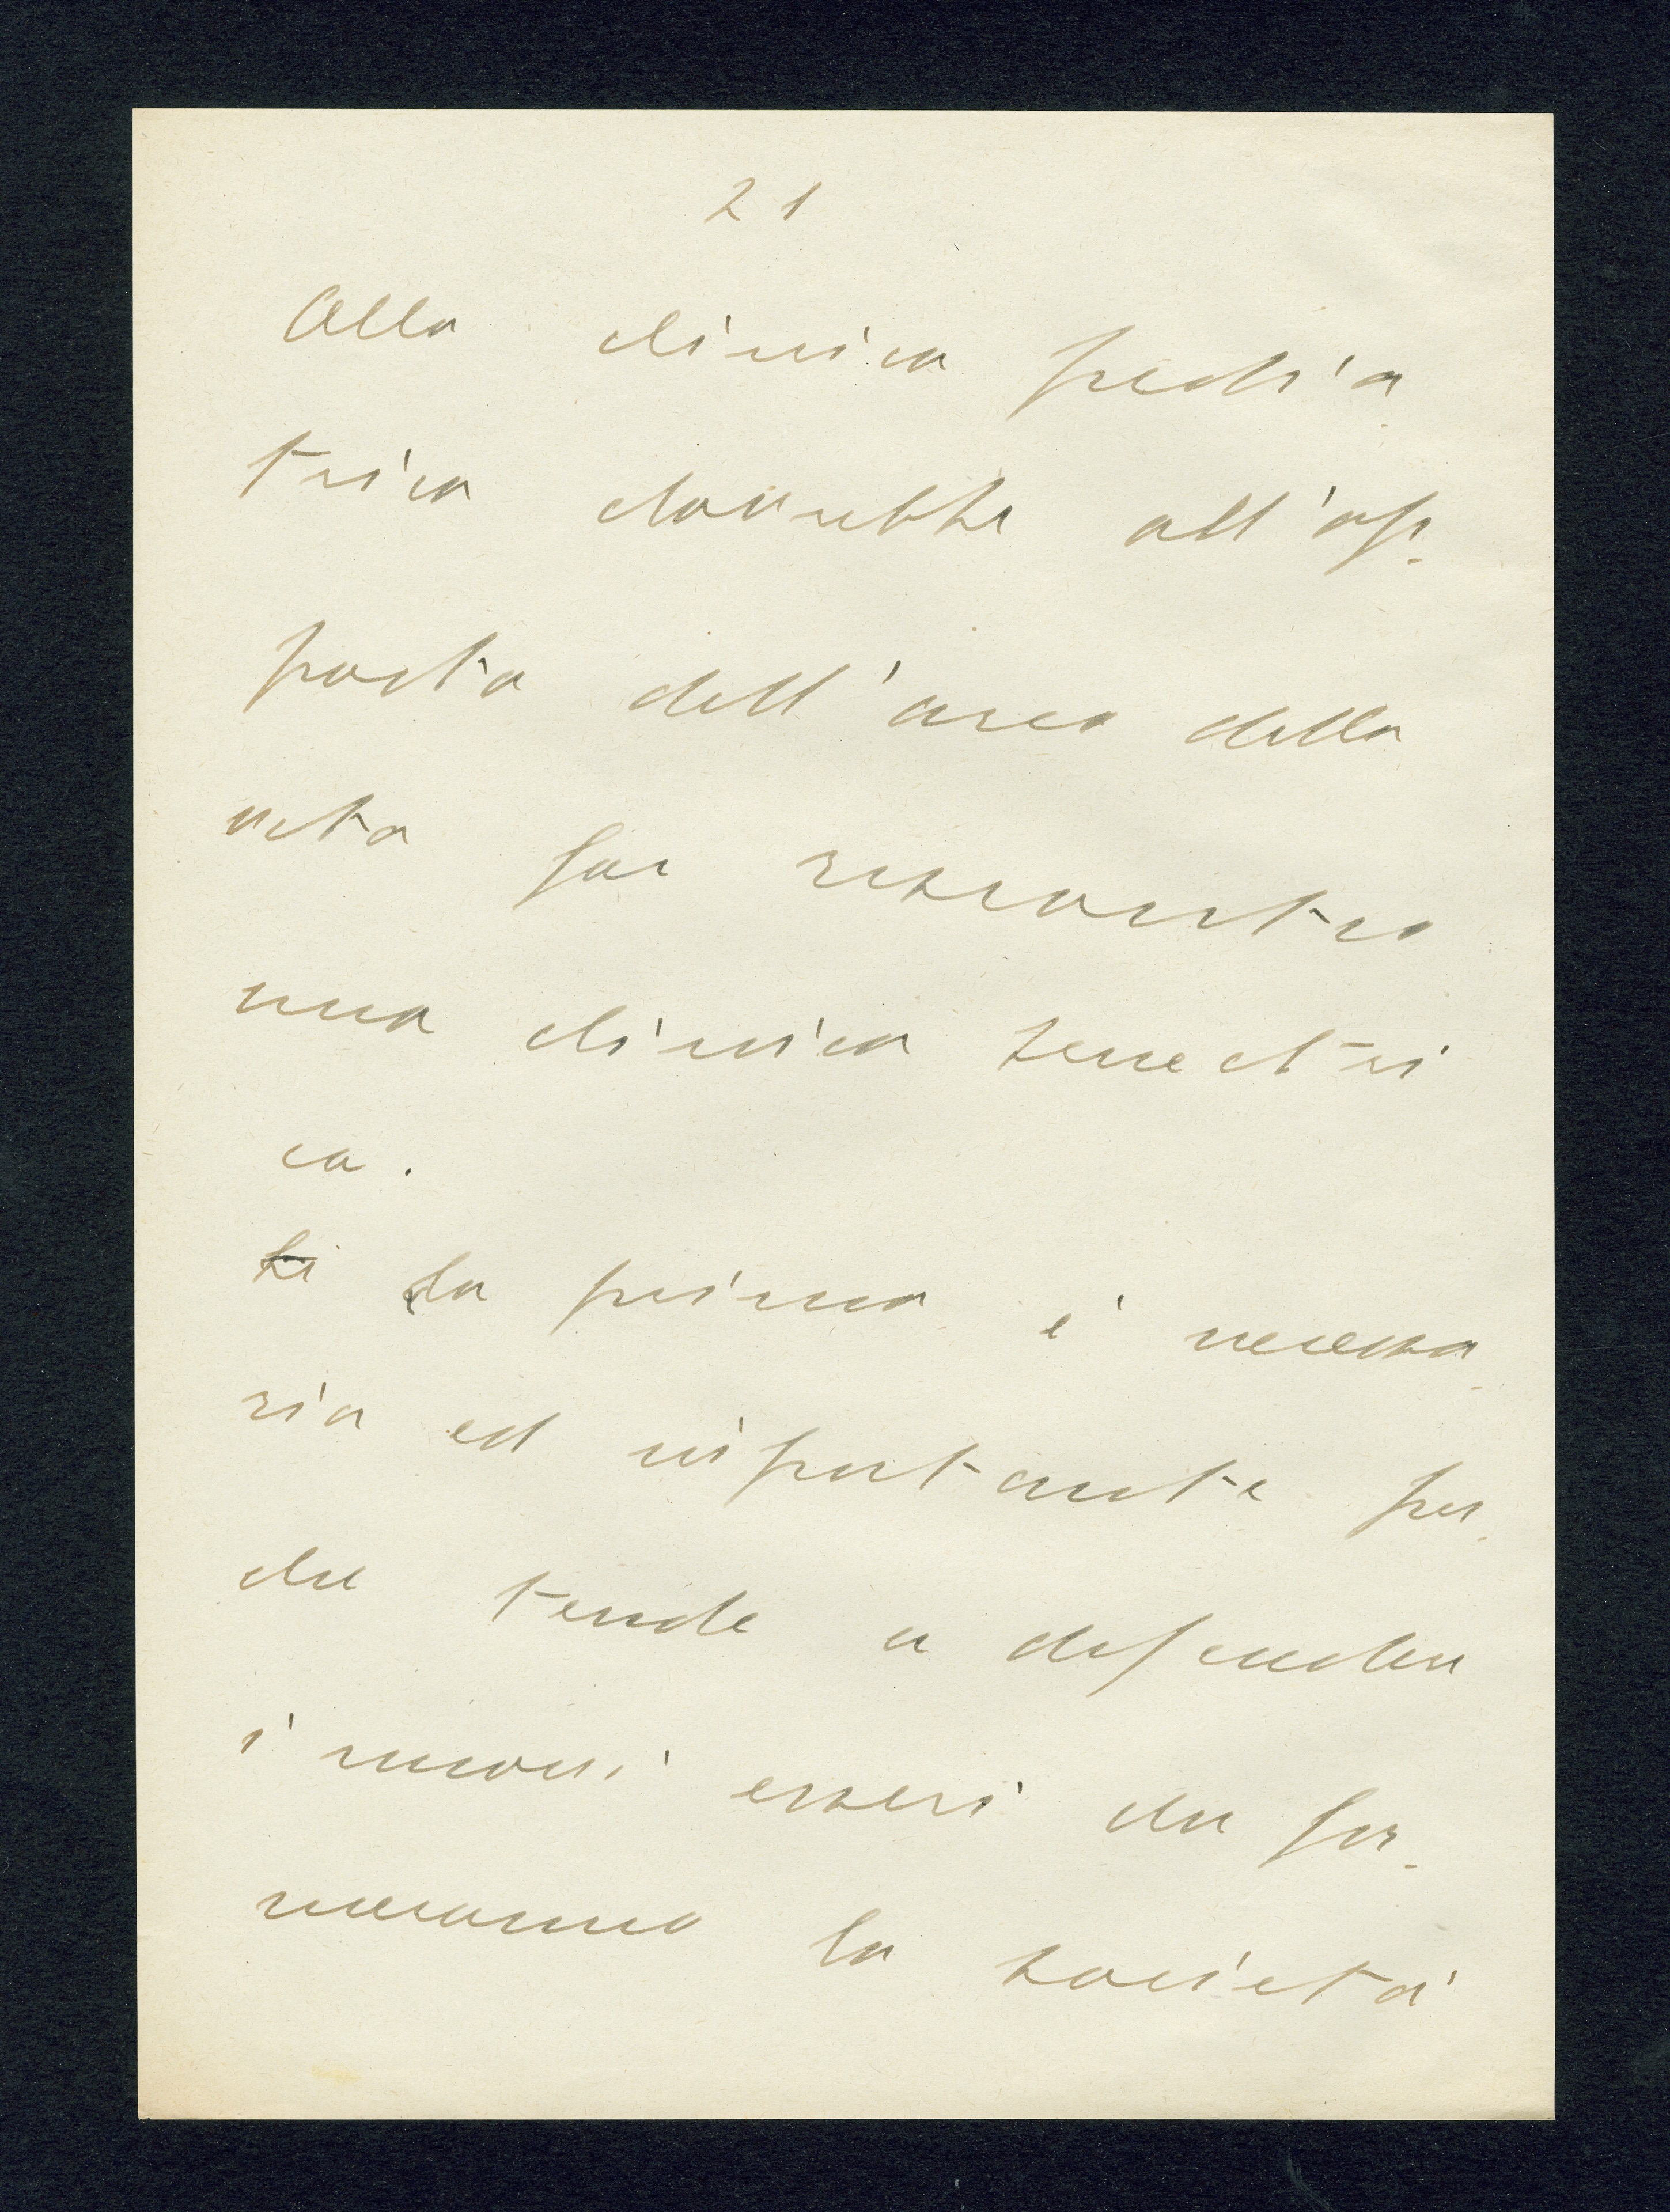 21
Alla clinica pedia-
trica dovrebbe all'op-
posto dell'arco della
vita far riscontro
una clinica senectri
ca.
La prima è necessa-
ria ed importante per-
che tende a difendere
i nuovi esseri che for-
meranno la società